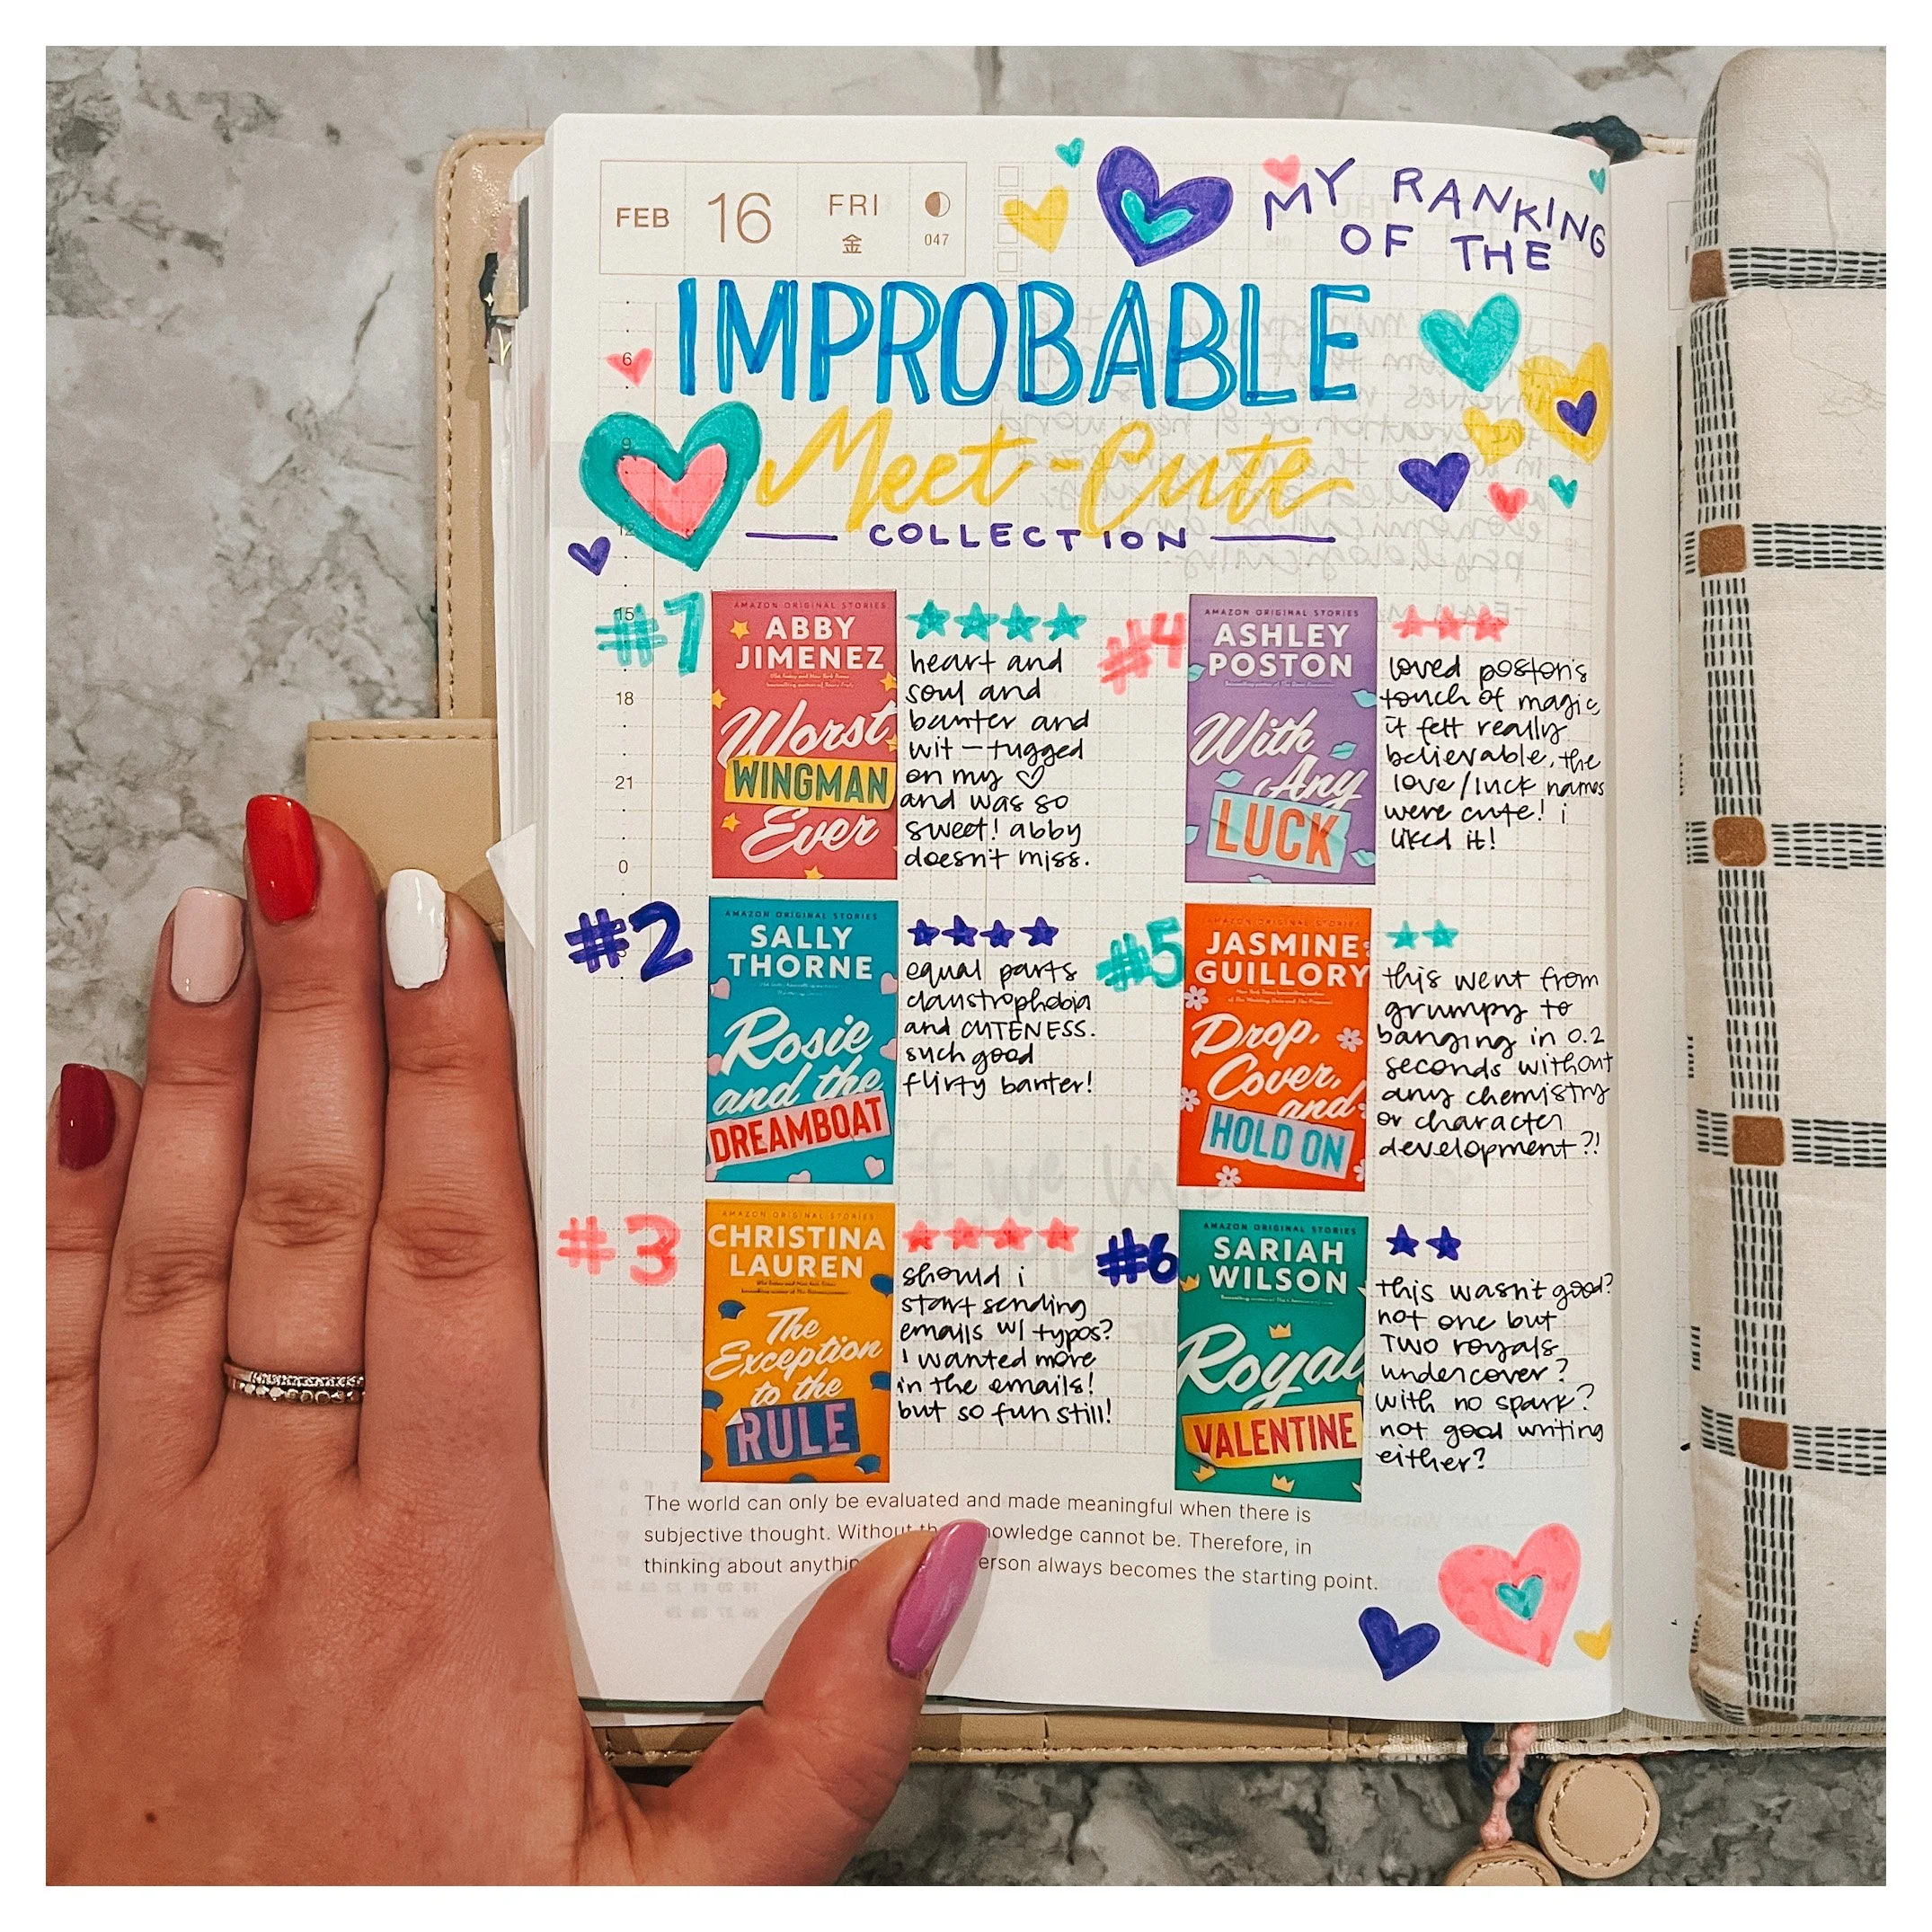 FEB 16 FRI
金 047
MY RANKING
OF THE
IMPROBABLE
Meet-Cute
COLLECTION
6
9
12
15
18
21
0
3
#1
AMAZON ORIGINAL STORIES
ABBY
JIMENEZ
Worst
WINGMAN
Ever
heart and
soul and
banter and
wit – tugged
on my ♡
and was so
sweet! abby
doesn't miss.
#2
AMAZON ORIGINAL STORIES
SALLY
THORNE
Rosie
and the
DREAMBOAT
equal parts
claustrophobia
and CUTENESS.
such good
flirty banter!
#3
AMAZON ORIGINAL STORIES
CHRISTINA
LAUREN
The
Exception
to the
RULE
should i
start sending
emails w/ typos?
i wanted more
in the emails!
but so fun still!
#4
AMAZON ORIGINAL STORIES
ASHLEY
POSTON
With
Any
LUCK
loved poston's
touch of magic
it felt really
believable, the
love/luck names
were cute! i
liked it!
#5
AMAZON ORIGINAL STORIES
JASMINE
GUILLORY
Drop,
Cover,
and
HOLD ON
this went from
grumpy to
banging in 0.2
seconds without
any chemistry
or character
development?!
#6
AMAZON ORIGINAL STORIES
SARIAH
WILSON
Royal
VALENTINE
this wasn't good?
not one but
TWO royals
undercover?
with no spark?
not good writing
either?
The world can only be evaluated and made meaningful when there is
subjective thought. Without knowledge cannot be. Therefore, in
thinking about always becomes the starting point.